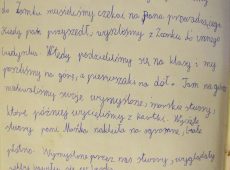 do Zamku musieliśmy czekać na pana prowadzącego.
Kiedy pan przyszedł, wyszliśmy z Zamku do innego
budynku. Wtedy podzieliliśmy się na klasy i my
poszliśmy na górę, a pierwszaki na dół. Tam na górze
malowaliśmy swoje wymyślone, morskie stwory,
które później wycięliśmy z kartki. Wycięte
stwory pani Monika nakleiła na ogromne, białe
płótno. Wymyślone przez nas stwory, wyglądały